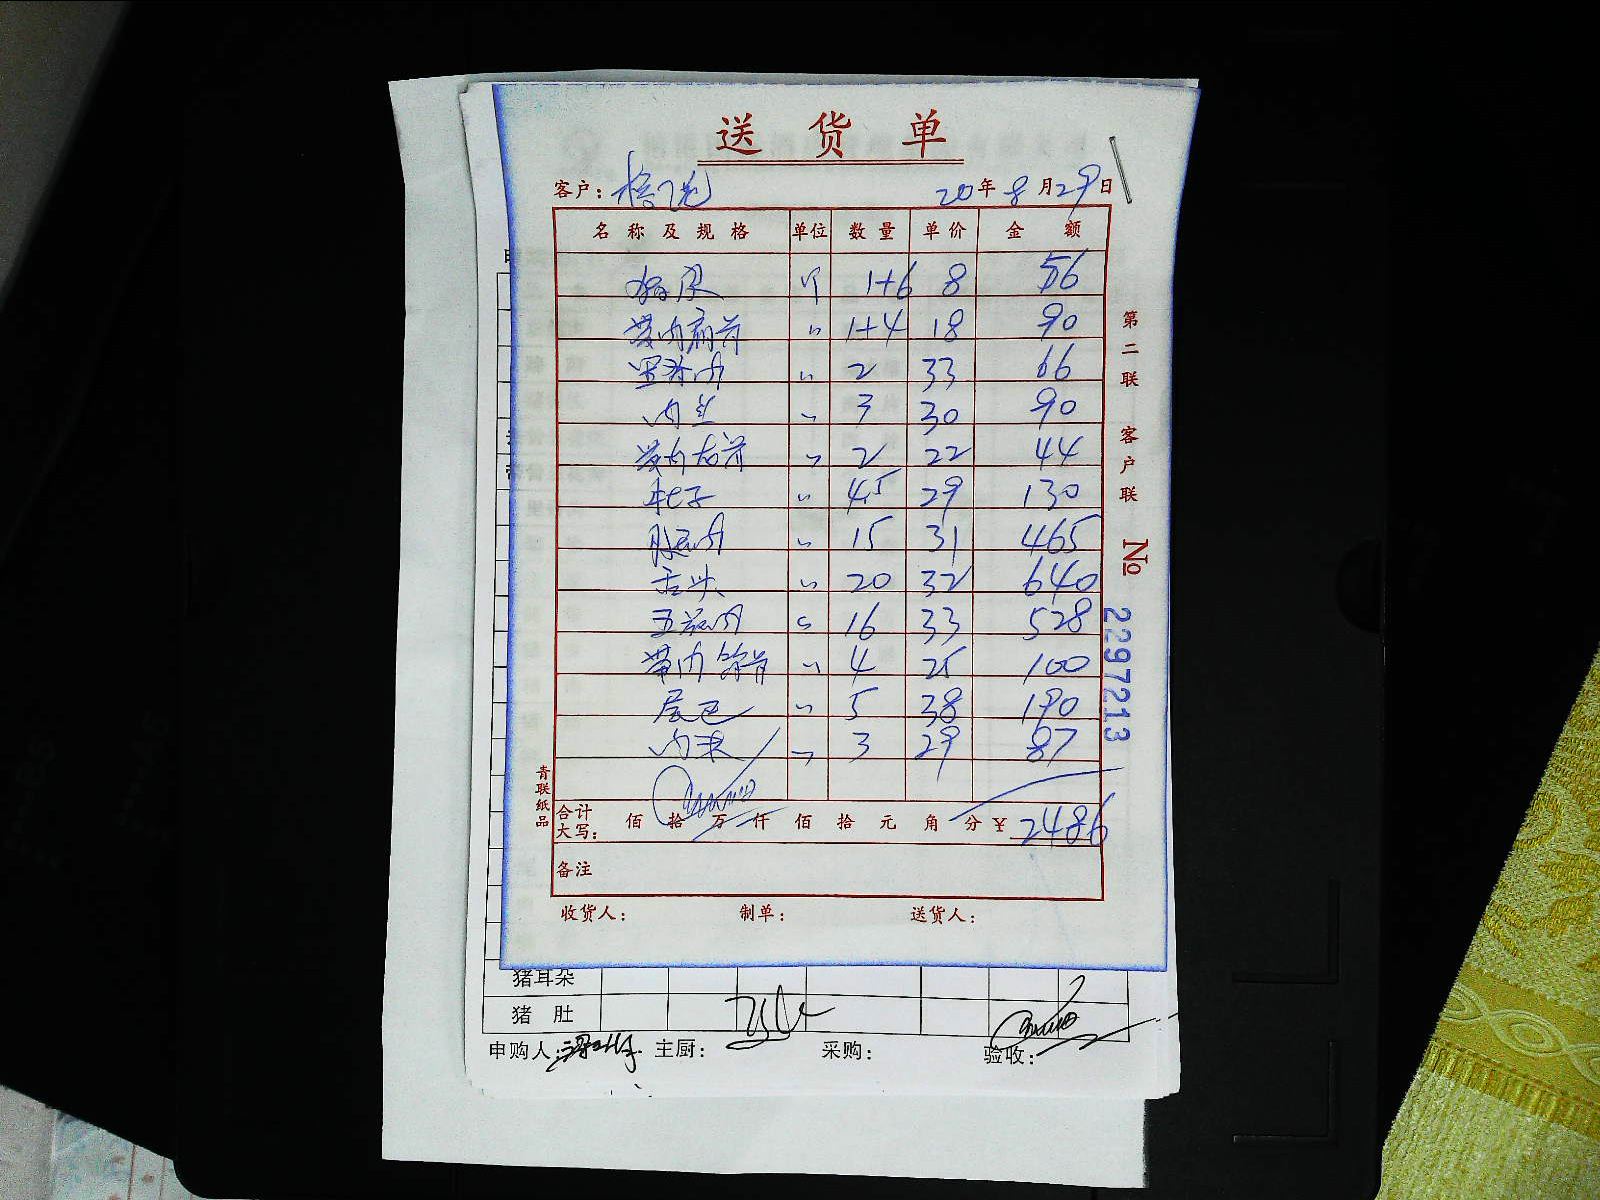 送货单
客户：
20年8月29日
名称及规格 单位 数量 单价 金额
猪尿 个 1+6 8 56
带肉扇骨 〃 1+4 18 90
里脊肉 〃 2 33 66
肉丝 〃 3 30 90
带肉龙骨 〃 2 22 44
肚子 〃 4.5 29 130
腿肉 〃 15 31 465
舌头 〃 20 32 640
五花肉 〃 16 33 528
带肉筒骨 〃 4 25 100
尾巴 〃 5 38 190
肉末 〃 3 29 87
合计
大写： 佰 拾 万 仟 佰 拾 元 角 分 ￥ 2486
备注
收货人： 制单： 送货人：
第二联 客户联 No 2297213
青联纸品
猪耳朵
猪肚
申购人： 主厨： 采购： 验收：